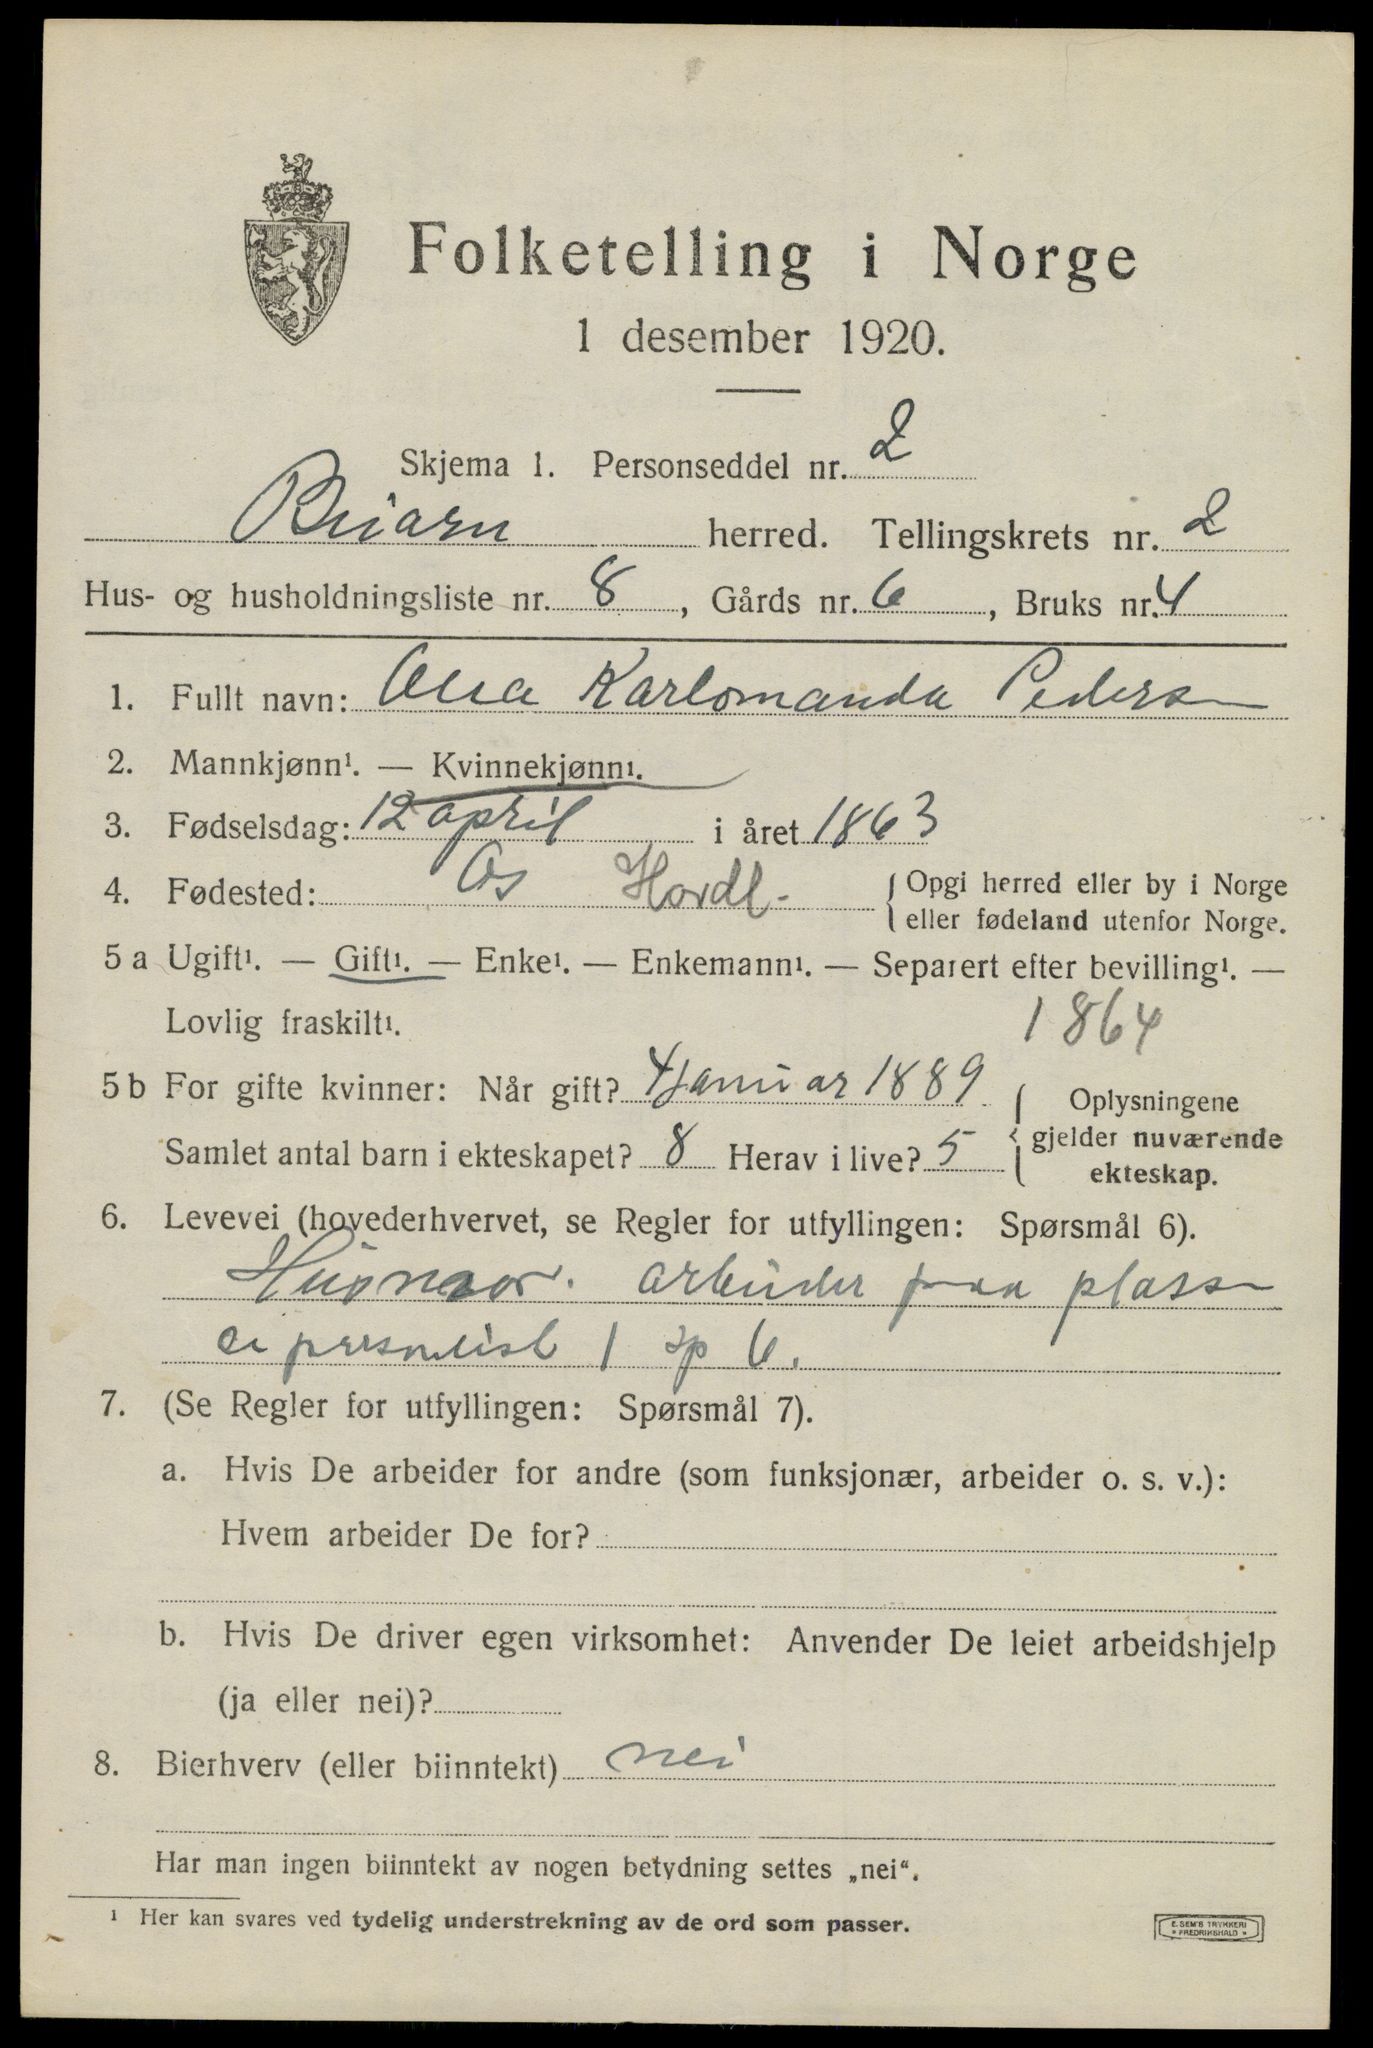 Folketelling i Norge
1 desember 1920.
Skjema 1. Personseddel nr. 2
Beiarn herred. Tellingskrets nr. 2
Hus- og husholdningsliste nr. 8, Gårds nr. 6, Bruks nr. 4
1. Fullt navn: Karlomanda Peders
2. Mannkjønn¹. — Kvinnekjønn¹.
3. Fødselsdag: 12 april i året 1863
4. Fødested: Os Hordl- { Opgi herred eller by i Norge
eller fødeland utenfor Norge.
5 a Ugift¹. — Gift¹. — Enke¹. — Enkemann¹. — Separert efter bevilling¹. —
Lovlig fraskilt¹. 1864
5 b For gifte kvinner: Når gift? 4 januar 1889
Samlet antal barn i ekteskapet? 8 Herav i live? 5
{ Oplysningene
gjelder nuværende
ekteskap.
6. Levevei (hovederhvervet, se Regler for utfyllingen: Spørsmål 6).
Husmor. arbeider paa plassen
personlist 1 sp 6.
7. (Se Regler for utfyllingen: Spørsmål 7).
a. Hvis De arbeider for andre (som funksjonær, arbeider o. s. v.):
Hvem arbeider De for?
b. Hvis De driver egen virksomhet: Anvender De leiet arbeidshjelp
(ja eller nei)?
8. Bierhverv (eller biinntekt) nei
Har man ingen biinntekt av nogen betydning settes „nei“.
¹ Her kan svares ved tydelig understrekning av de ord som passer.
E. SEM'S TRYKKERI
* FREDRIKSHALD *